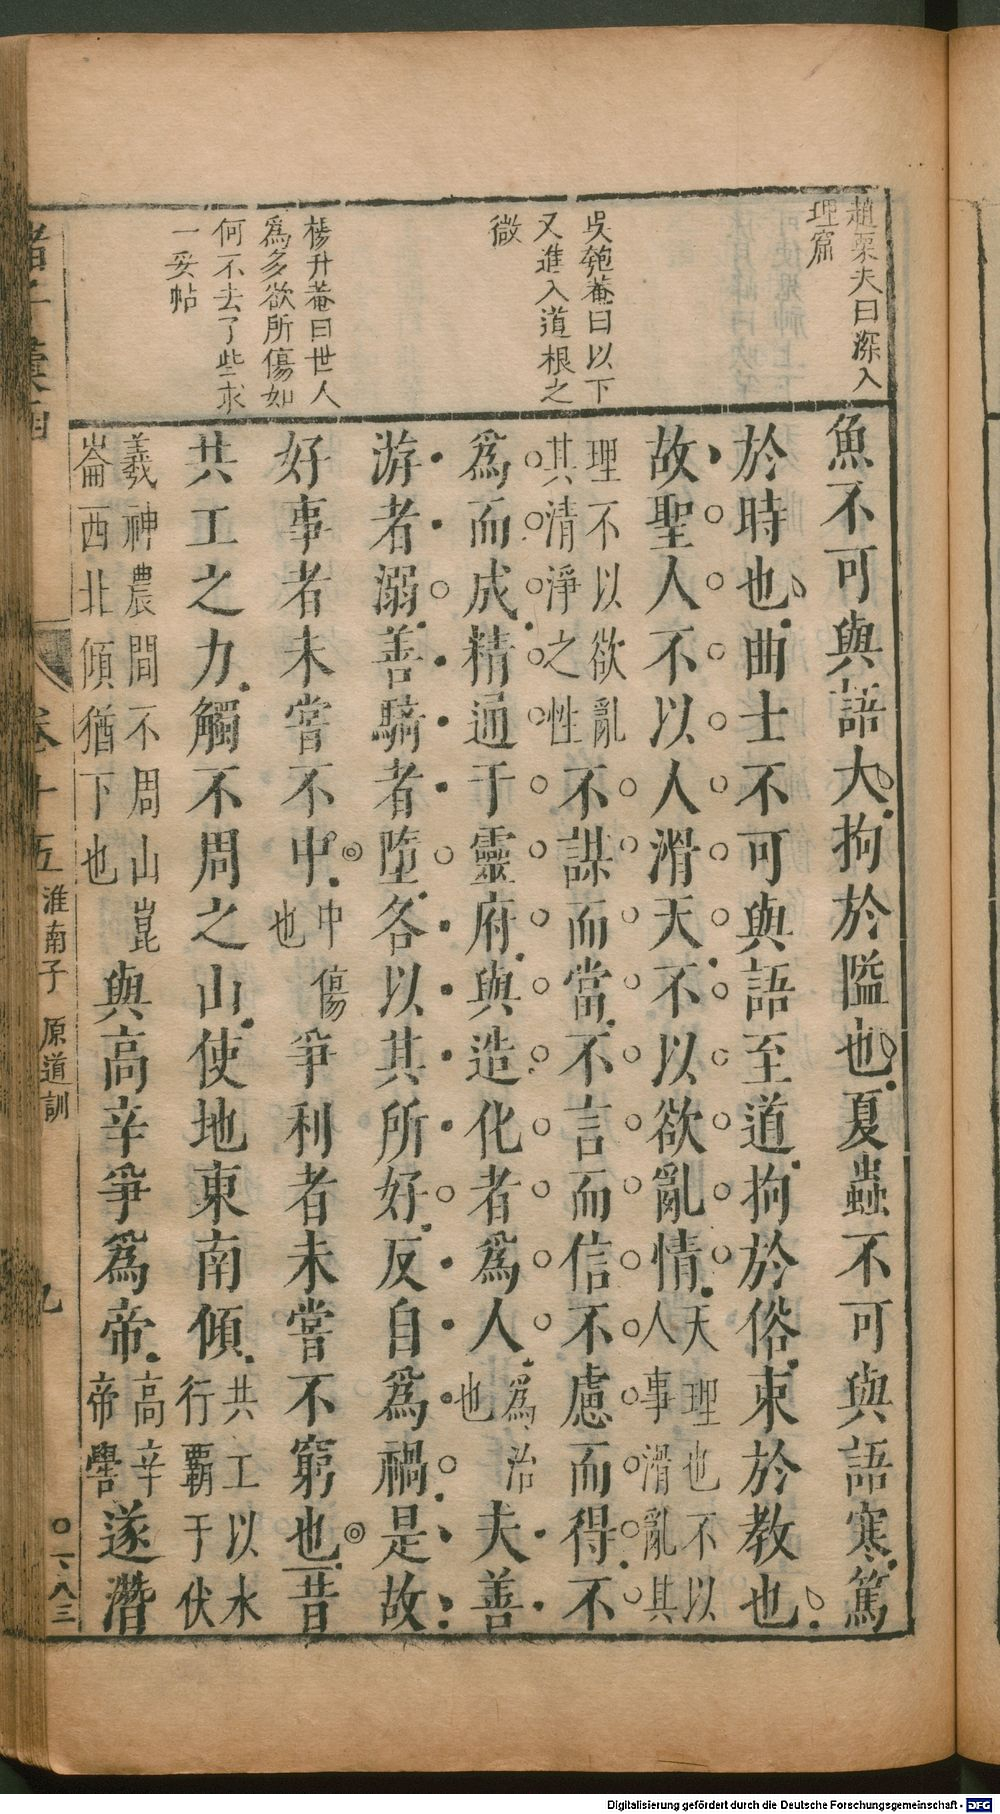 趙栗夫曰深入
理窟
吳匏菴曰以下
又進入道根之
微
楊升菴曰世人
為多欲所傷如
何不去了些求
一妥帖
魚不可與語大拘於隘也夏蟲不可與語寒篤
於時也曲士不可與語至道拘於俗束於教也
故聖人不以人滑天不以欲亂情天理也不以人事滑亂其
理不以欲亂其清淨之性不謀而當不言而信不慮而得不
爲而成精通于靈府與造化者爲人爲治也夫善
游者溺善騎者墮各以其所好反自爲禍是故
好事者未嘗不中中傷也爭利者未嘗不窮也昔
共工之力觸不周之山使地東南傾共工以水行霸于伏
羲神農間不周山崑崙西北傾猶下也與高辛爭爲帝高辛帝嚳遂潛
卷十五 淮南子 原道訓 九 〇一、八三
Digitalisierung gefördert durch die Deutsche Forschungsgemeinschaft - DFG